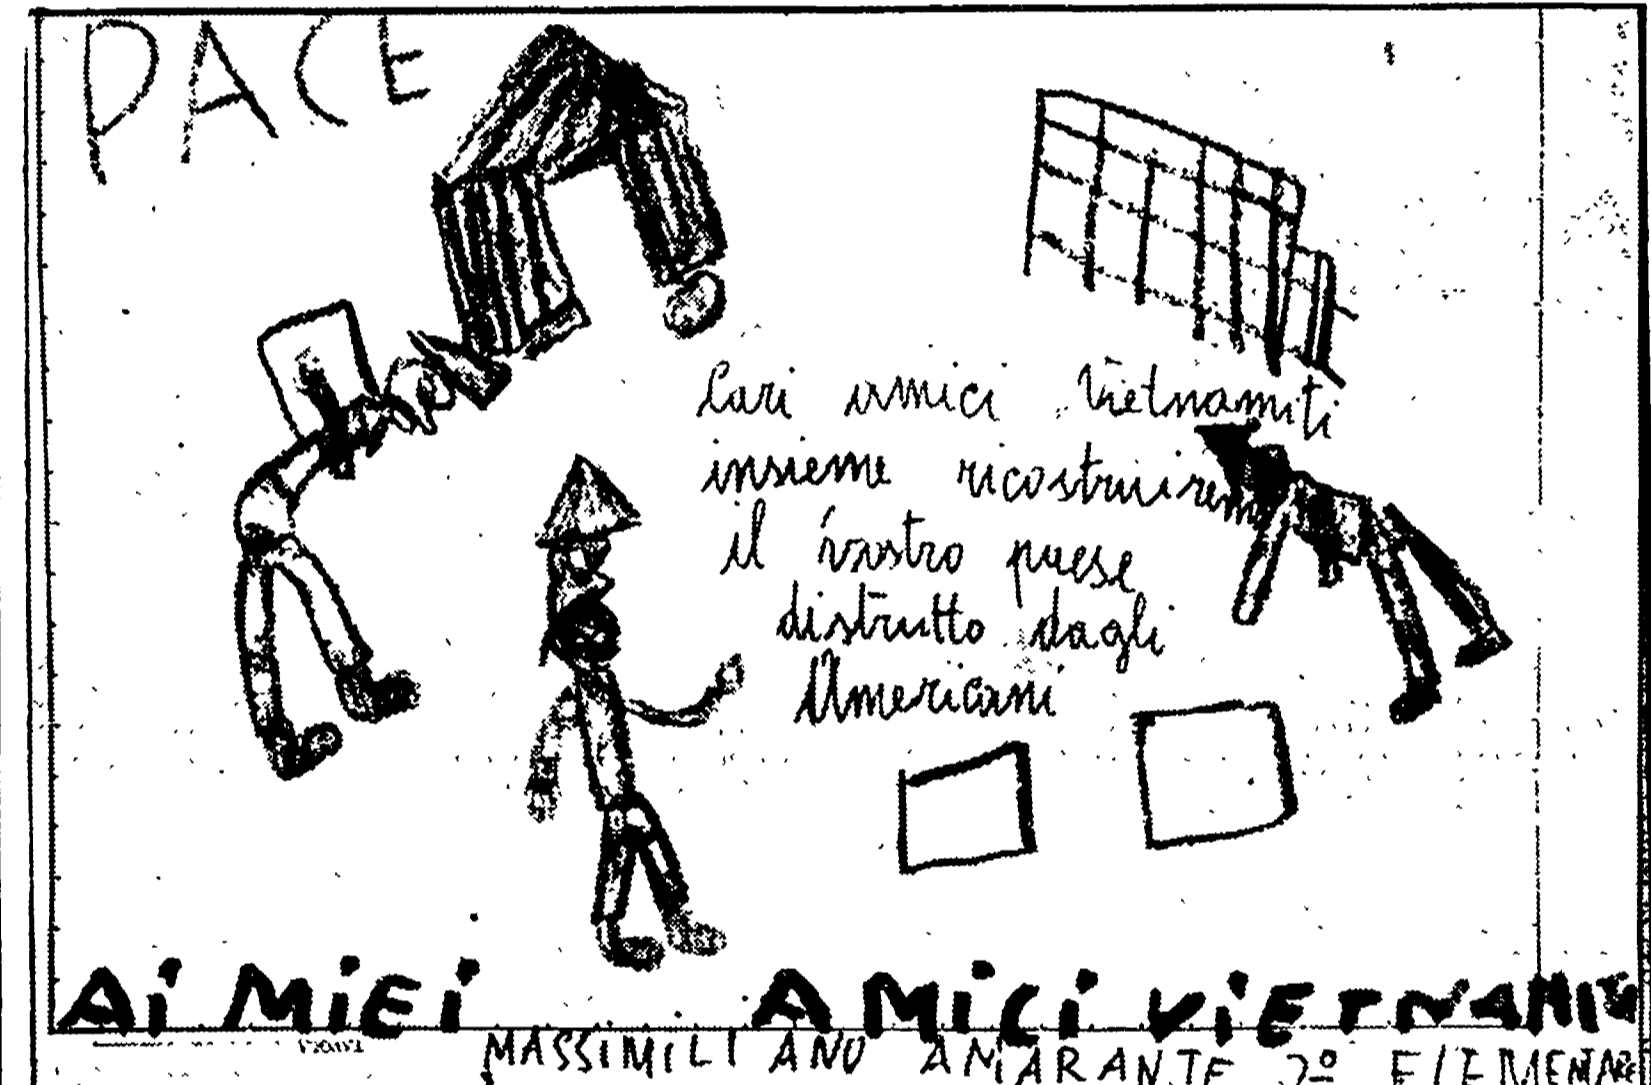 PACE
Cari amici Vietnamiti
insieme ricostruiremo
il vostro paese
distrutto dagli
Americani
Ai MiEi AMiCi ViETNAMiTi
MASSIMILIANO AMARANTE 2º ELEMENTARE